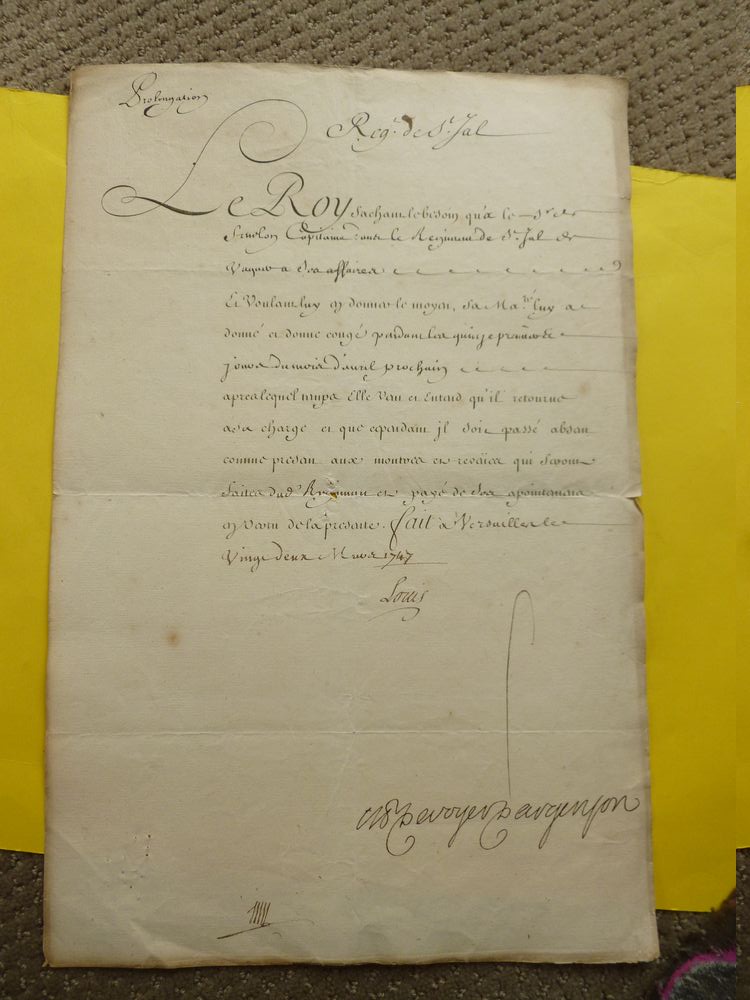 Prolongation
Reg.t de S.t Jal
Le Roy sachant le besoin qu'a le S.r de
Capitaine dans le Regiment de S.t Jal de
Vaquer a ses affaires
Et Voulant luy en donner le moyen, Sa Ma.té luy a
donné et donne congé pendant les quinze premiers
jours du mois d'avril prochain
apres lequel temps Elle Veut et Entend qu'il retourne
a sa charge et que cependant jl soit passé absent
comme present aux montres et reveües qui seront
faites dud. Regiment et payé de ses apointemens
en vertu de la presente. Fait a Versailles le
Vingt deux Mars 1747
Louis
M P de voyer D argenson